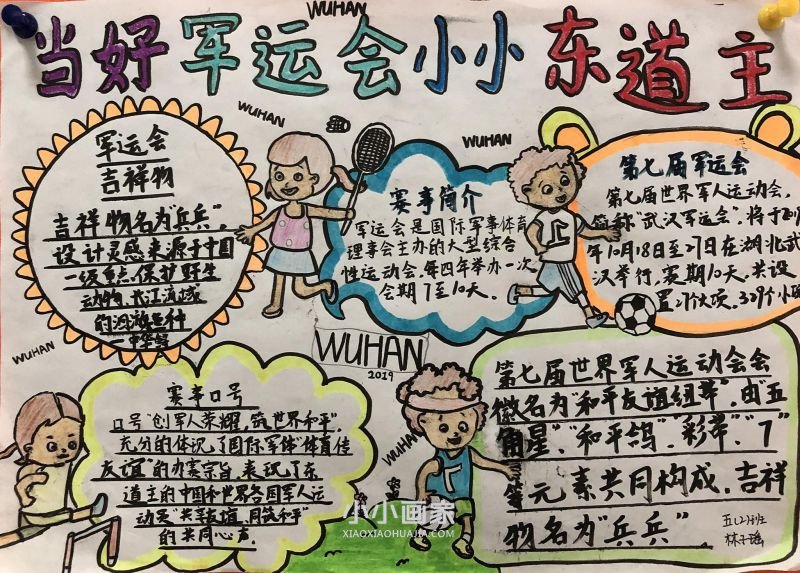 WUHAN
当好军运会小小东道主
WUHAN
WUHAN
军运会
吉祥物
吉祥物名为"兵兵",
设计灵感来源于中国
一级重点保护野生
动物、长江流域
的洄游鱼种
一中华鲟
赛事简介
军运会是国际军事体育
理事会主办的大型综合
性运动会,每四年举办一次
会期7至10天。
第七届军运会
第七届世界军人运动会,
简称"武汉军运会",将于到
年10月18日至27日在湖北武
汉举行,赛期10天,共设
置27个大项、329个小项
WUHAN
WUHAN
2019
赛事口号
口号"创军人荣耀,筑世界和平"。
充分的体现了国际军体"体育传
友谊"的办赛宗旨,表现了东
道主的中国和世界各国军人运
动员"共享友谊,同筑和平"
的共同心声。
WUHAN
第七届世界军人运动会会
徽名为"和平友谊纽带",由"五
角星"、"和平鸽"、"彩带"、"7"
等元素共同构成。吉祥
物名为"兵兵"。
五(2)班
小小画家
XIAOXIAOHUAJIA.COM